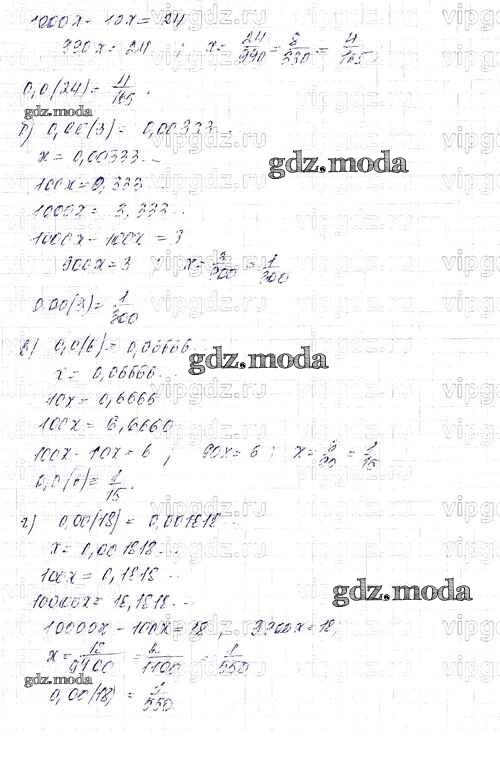 1000x - 10x = 24
990x = 24 ; x = 24/990 = 8/330 = 4/165;
0,0(24) = 4/165.
gdz.moda
б) 0,00(3) = 0,00333...
x = 0,00333...
gdz.moda
100x = 0,333...
1000x = 3,333...
1000x - 100x = 3
900x = 3 ; x = 3/900 = 1/300
0,00(3) = 1/300
в) 0,0(6) = 0,06666...
gdz.moda
x = 0,06666...
10x = 0,6666
100x = 6,6660
100x - 10x = 6 ; 90x = 6 ; x = 6/90 = 1/15
0,0(6) = 1/15.
г) 0,00(18) = 0,001818...
x = 0,001818...
100x = 0,1818...
gdz.moda
10000x = 18,1818...
10000x - 100x = 18 ; 9900x = 18;
x = 18/9900 = 2/1100 = 1/550
gdz.moda
0,00(18) = 1/550.
vipgdz.ru